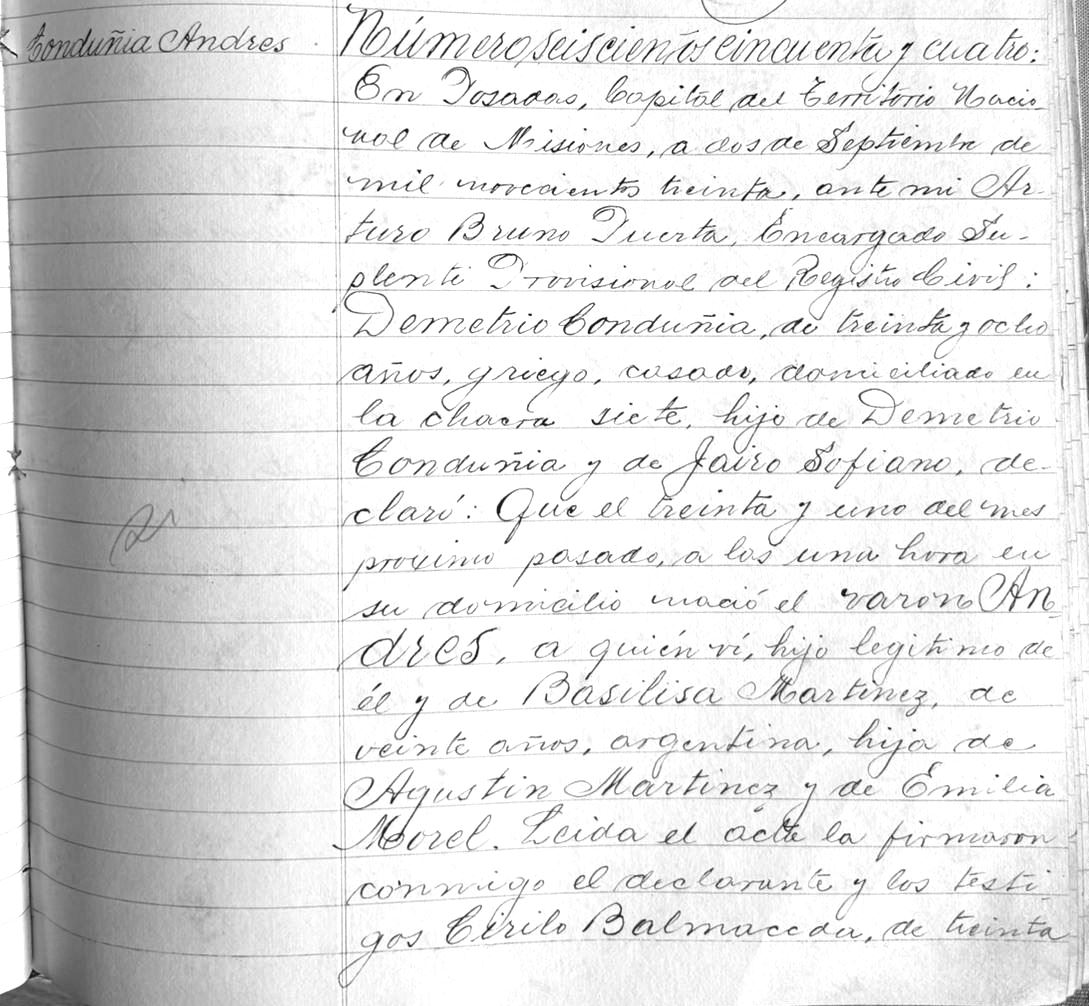 Conduñia Andres
Número seiscientos cincuenta y cuatro:
En Posadas, Capital del Territorio Nacio
nal de Misiones, a dos de Septiembre de
mil novecientos treinta, ante mi Ar-
turo Bruno Puerta, Encargado Su-
plente Provisional del Registro Civil:
Demetrio Conduñia, de treinta y ocho
años, griego, casado, domiciliado en
la chacra siete, hijo de Demetrio
Conduñia y de Jairo Sofiano, de-
claró: Que el treinta y uno del mes
proximo pasado, a las una hora en
su domicilio nació el varon An
dres, a quién ví, hijo legitimo de
él y de Basilisa Martinez, de
veinte años, argentina, hija de
Agustin Martinez y de Emilia
Morel. Leida el acta la firmaron
conmigo el declarante y los testi
gos Cirilo Balmaceda, de treinta